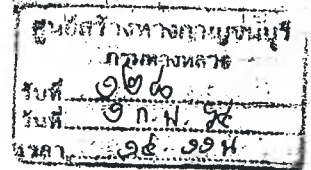 ศูนย์สร้างทางกาญจนบุรี
กรมทางหลวง
รับที่ ๑๒๘
วันที่ ๑ ก.พ. ๖๔
เวลา ๑๔.๑๑ น